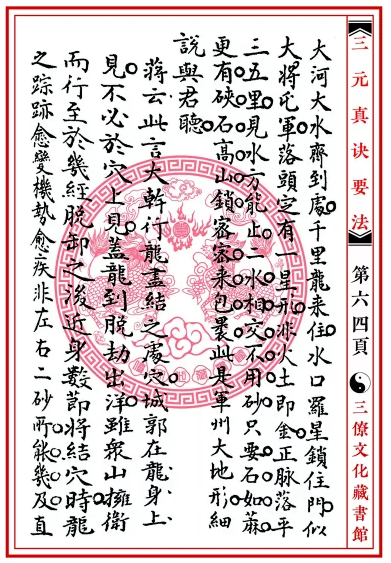 三元真诀要法
第六四頁
三僚文化藏書館
大河大水齊到處千里龍来住水口羅星鎖住門似
大將屯軍落頭定有一星形非火土即金正脉落平
三五里見水方能止二水相交不用砂只要石如蔴
更有硤石高山鎖密密来包裹此是軍州大地形細
說與君聽
蔣云此言大幹行龍盡結之處穴城郭在龍身上
見不必於穴上見蓋龍到脱刼出洋雖衆山擁衛
而行至於幾經脱卸之後近身數節將結穴時龍
之踪跡愈變機勢愈疾非左右二砂所能幾及直